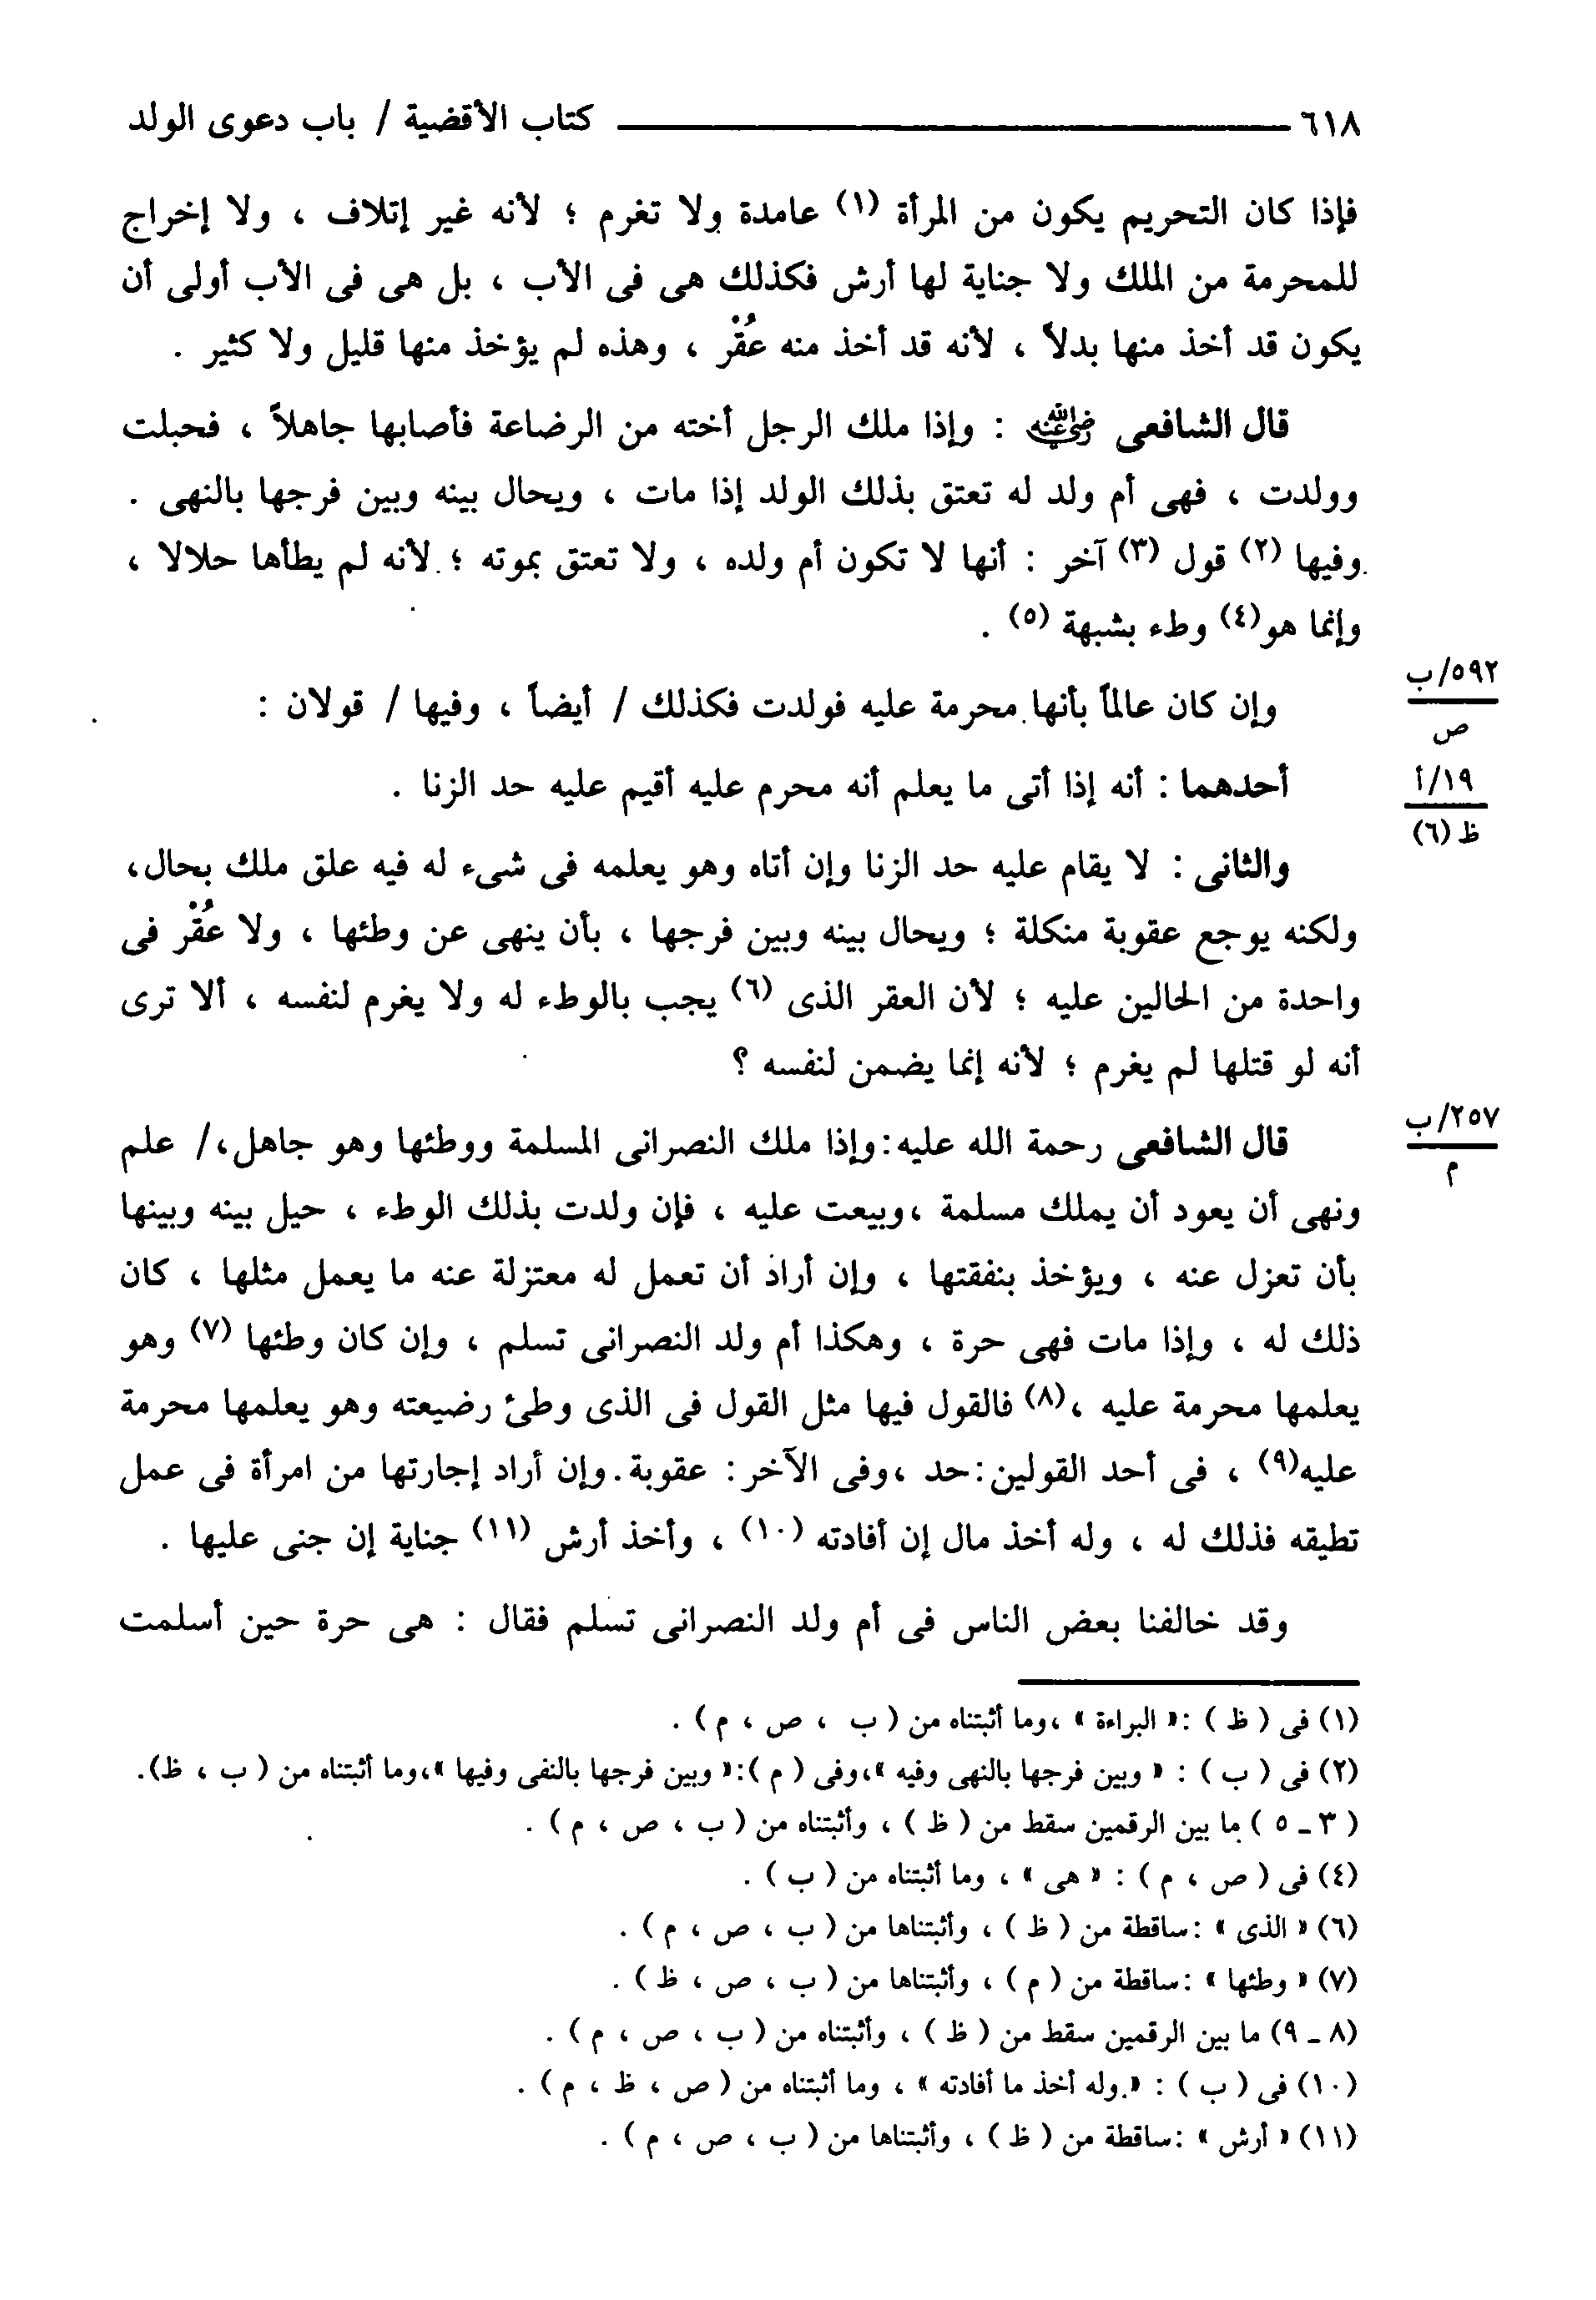 ٦١٨ كتاب الأقضية / باب دعوى الولد
فإذا كان التحريم يكون من المرأة (١) عامدة ولا تغرم ؛ لأنه غير إتلاف ، ولا إخراج
للمحرمة من الملك ولا جناية لها أرش فكذلك هى فى الأب ، بل هى فى الأب أولى أن
يكون قد أخذ منها بدلاً ، لأنه قد أخذ منه عُقْر ، وهذه لم يؤخذ منها قليل ولا كثير .
قال الشافعى رضي الله عنه : وإذا ملك الرجل أخته من الرضاعة فأصابها جاهلاً ، فحبلت
وولدت ، فهى أم ولد له تعتق بذلك الولد إذا مات ، ويحال بينه وبين فرجها بالنهى .
وفيها (٢) قول (٣) آخر : أنها لا تكون أم ولده ، ولا تعتق بموته ؛ لأنه لم يطأها حلالا ،
وإنما هو(٤) وطء بشبهة (٥) .
وإن كان عالماً بأنها محرمة عليه فولدت فكذلك / أيضاً ، وفيها / قولان :
٥٩٢/ب
ص
أحدهما : أنه إذا أتى ما يعلم أنه محرم عليه أقيم عليه حد الزنا .
١٩/أ
ظ (٦)
والثانى : لا يقام عليه حد الزنا وإن أتاه وهو يعلمه فى شىء له فيه علق ملك بحال،
ولكنه يوجع عقوبة منكلة ؛ ويحال بينه وبين فرجها ، بأن ينهى عن وطئها ، ولا عُقْر فى
واحدة من الحالين عليه ؛ لأن العقر الذى (٦) يجب بالوطء له ولا يغرم لنفسه ، ألا ترى
أنه لو قتلها لم يغرم ؛ لأنه إنما يضمن لنفسه ؟
قال الشافعى رحمة الله عليه:وإذا ملك النصرانى المسلمة ووطئها وهو جاهل،/ علم
٢٥٧/ب
م
ونهى أن يعود أن يملك مسلمة ،وبيعت عليه ، فإن ولدت بذلك الوطء ، حيل بينه وبينها
بأن تعزل عنه ، ويؤخذ بنفقتها ، وإن أراد أن تعمل له معتزلة عنه ما يعمل مثلها ، كان
ذلك له ، وإذا مات فهى حرة ، وهكذا أم ولد النصرانى تسلم ، وإن كان وطئها (٧) وهو
يعلمها محرمة عليه ،(٨) فالقول فيها مثل القول فى الذى وطئ رضيعته وهو يعلمها محرمة
عليه(٩) ، فى أحد القولين:حد ،وفى الآخر: عقوبة.وإن أراد إجارتها من امرأة فى عمل
تطيقه فذلك له ، وله أخذ مال إن أفادته (١٠) ، وأخذ أرش (١١) جناية إن جنى عليها .
وقد خالفنا بعض الناس فى أم ولد النصرانى تسلم فقال : هى حرة حين أسلمت
(١) فى ( ظ ) :« البراءة » ،وما أثبتناه من ( ب ، ص ، م ) .
(٢) فى ( ب ) : « وبين فرجها بالنهى وفيه »،وفى ( م ):« وبين فرجها بالنفى وفيها »،وما أثبتناه من ( ب ، ظ).
( ٣ ـ ٥ ) ما بين الرقمين سقط من ( ظ ) ، وأثبتناه من ( ب ، ص ، م ) .
(٤) فى ( ص ، م ) : « هى » ، وما أثبتناه من ( ب ) .
(٦) « الذى » :ساقطة من ( ظ ) ، وأثبتناها من ( ب ، ص ، م ) .
(٧) « وطئها » :ساقطة من ( م ) ، وأثبتناها من ( ب ، ص ، ظ ) .
(٨ ـ ٩) ما بين الرقمين سقط من ( ظ ) ، وأثبتناه من ( ب ، ص ، م ) .
(١٠) فى ( ب ) : « وله أخذ ما أفادته » ، وما أثبتناه من ( ص ، ظ ، م ) .
(١١) « أرش » :ساقطة من ( ظ ) ، وأثبتناها من ( ب ، ص ، م ) .